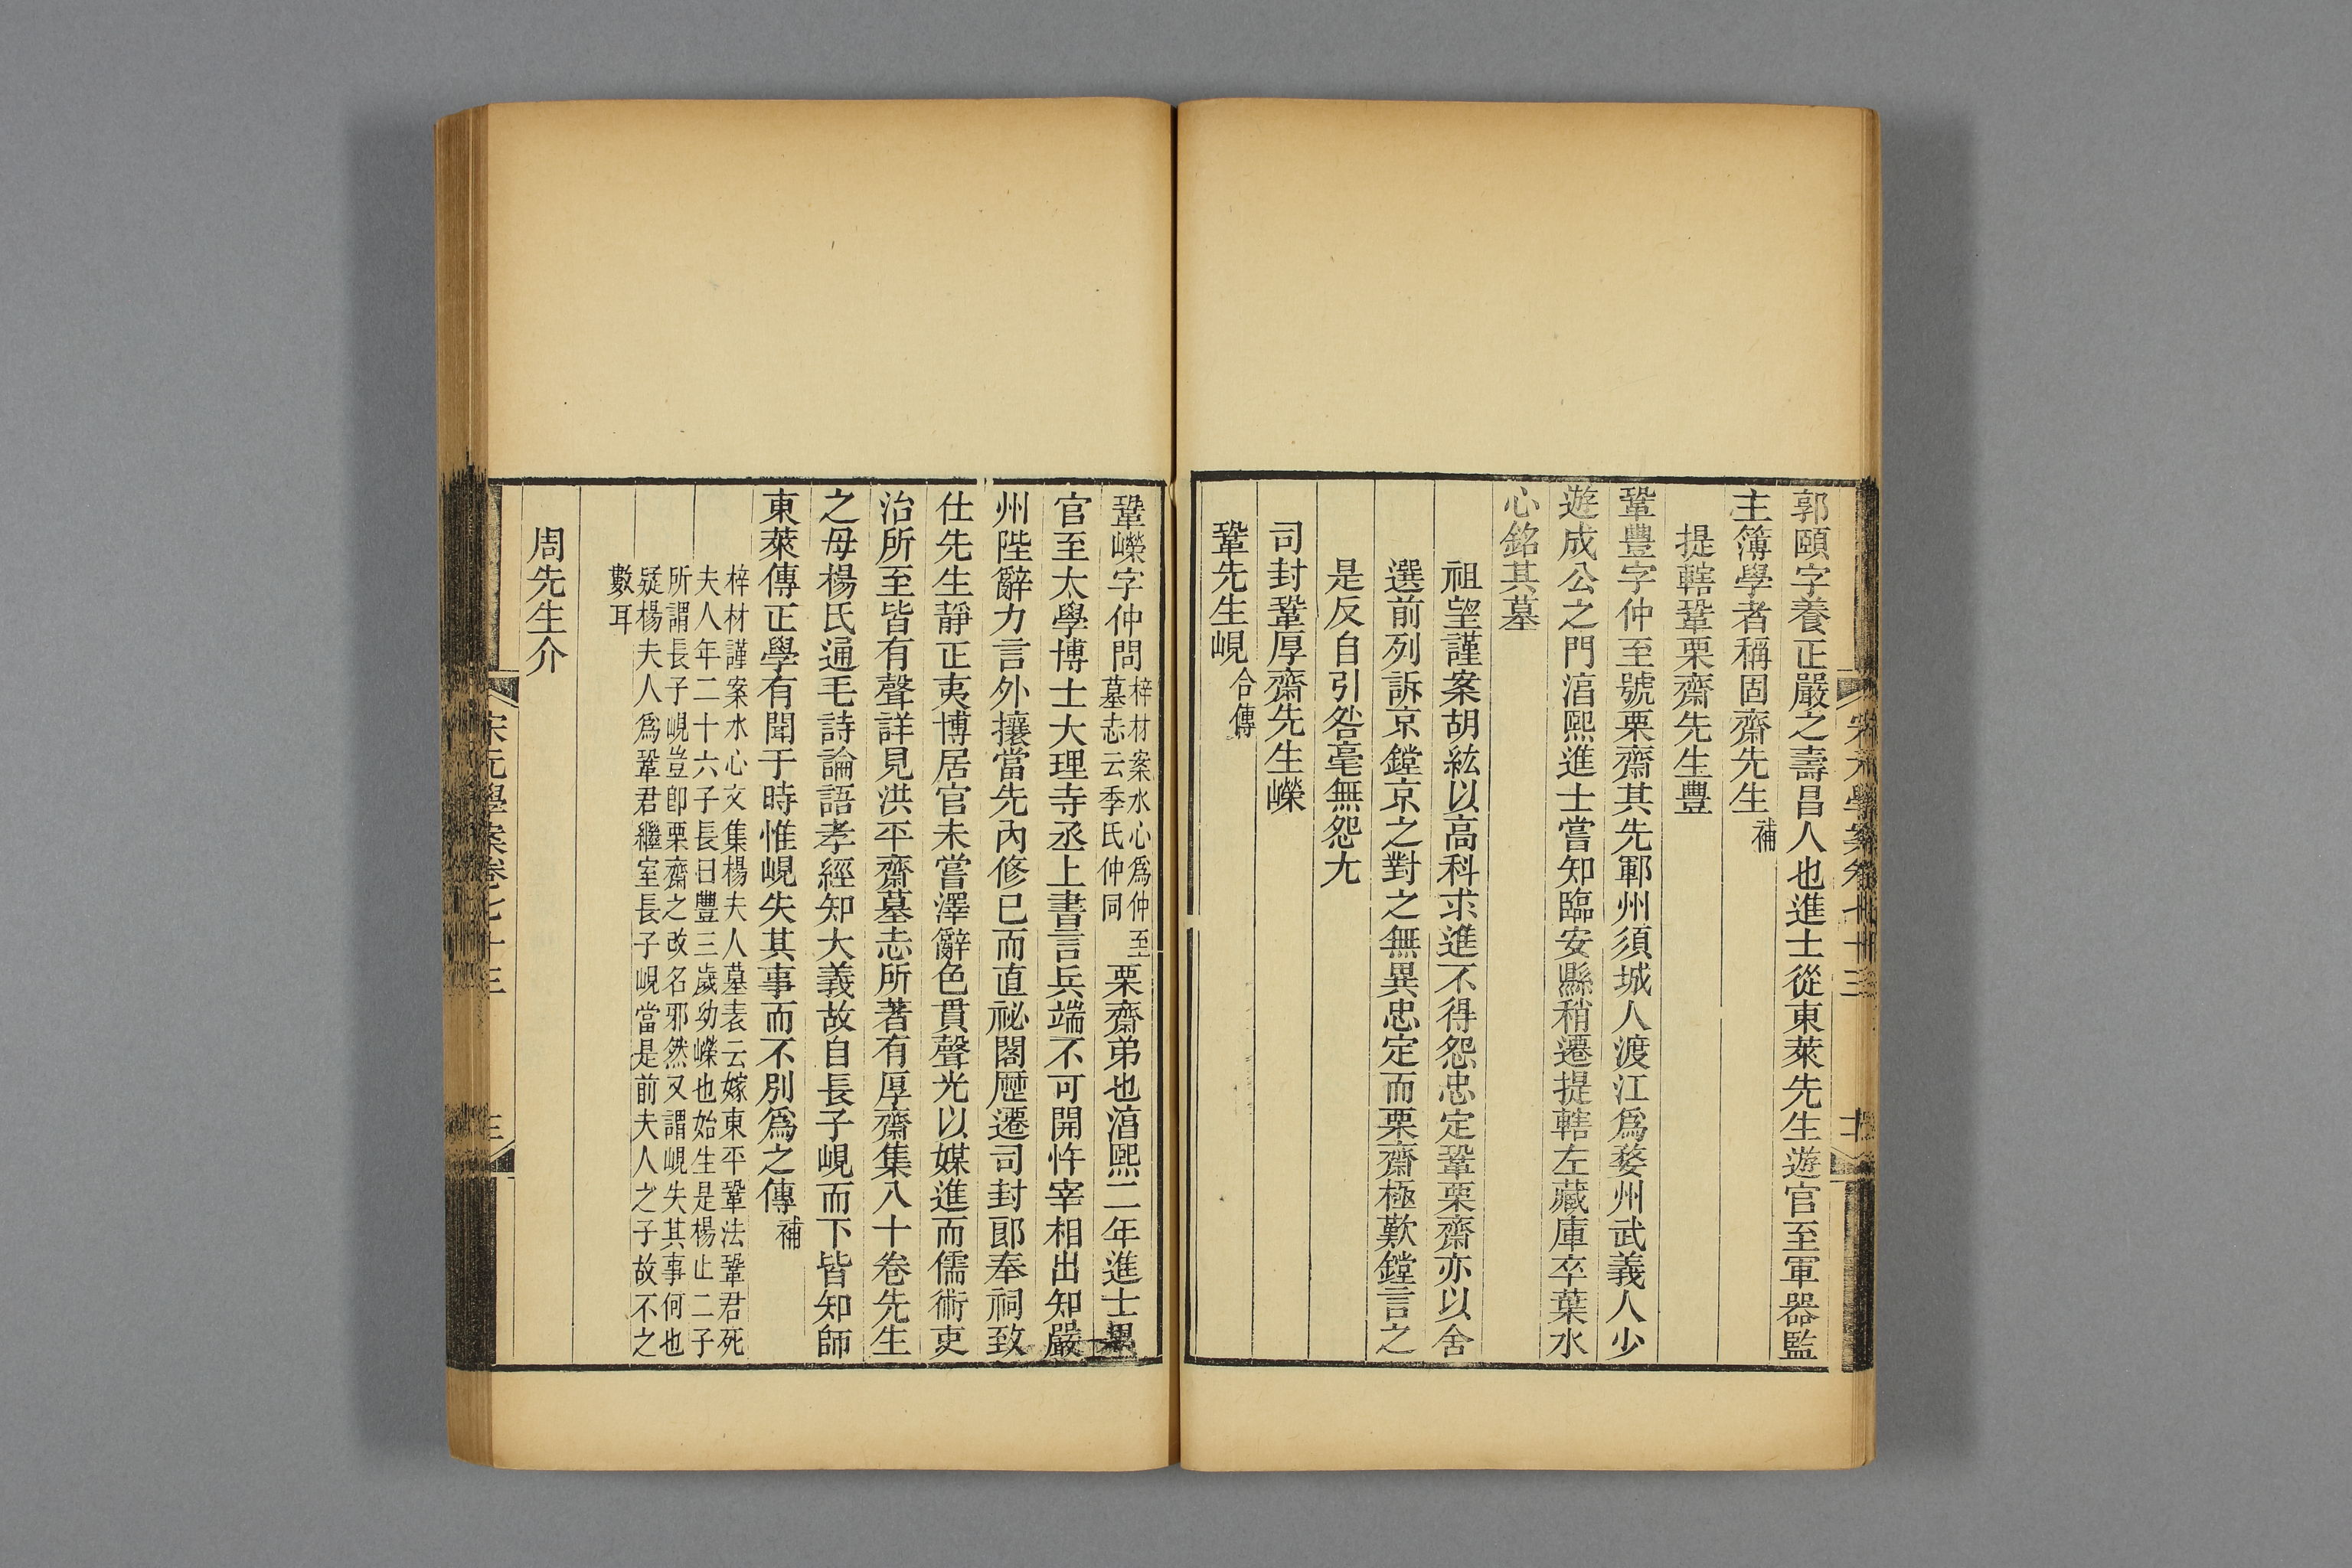 郭頤字養正嚴之壽昌人也進士從東萊先生遊官至軍器監
主簿學者稱固齋先生補
提轄鞏栗齋先生豐
鞏豐字仲至號栗齋其先鄆州須城人渡江爲婺州武義人少
遊成公之門湻熙進士嘗知臨安縣稍遷提轄左藏庫卒葉水
心銘其墓
祖望謹案胡紘以高科求進不得怨忠定鞏栗齋亦以舍
選前列訴京鏜京之對之無異忠定而栗齋極歎鏜言之
是反自引咎毫無怨尤
司封鞏厚齋先生嶸
鞏先生峴合傳
宋元學案卷七十三
鞏嶸字仲問梓材案水心爲仲至墓志云季氏仲同栗齋弟也湻熙二年進士累
官至太學博士大理寺丞上書言兵端不可開忤宰相出知嚴
州陛辭力言外攘當先內修已而直祕閣歷遷司封郎奉祠致
仕先生靜正夷博居官未嘗澤辭色貫聲光以媒進而儒術吏
治所至皆有聲詳見洪平齋墓志所著有厚齋集八十卷先生
之母楊氏通毛詩論語孝經知大義故自長子峴而下皆知師
東萊傳正學有聞于時惟峴失其事而不別爲之傳補
梓材謹案水心文集楊夫人墓表云嫁東平鞏法鞏君死
夫人年二十六子長曰豐三歲幼嶸也始生是楊止二子
所謂長子峴豈卽栗齋之改名邪然又謂峴失其事何也
疑楊夫人爲鞏君繼室長子峴當是前夫人之子故不之
數耳
周先生介
宋元學案卷七十三